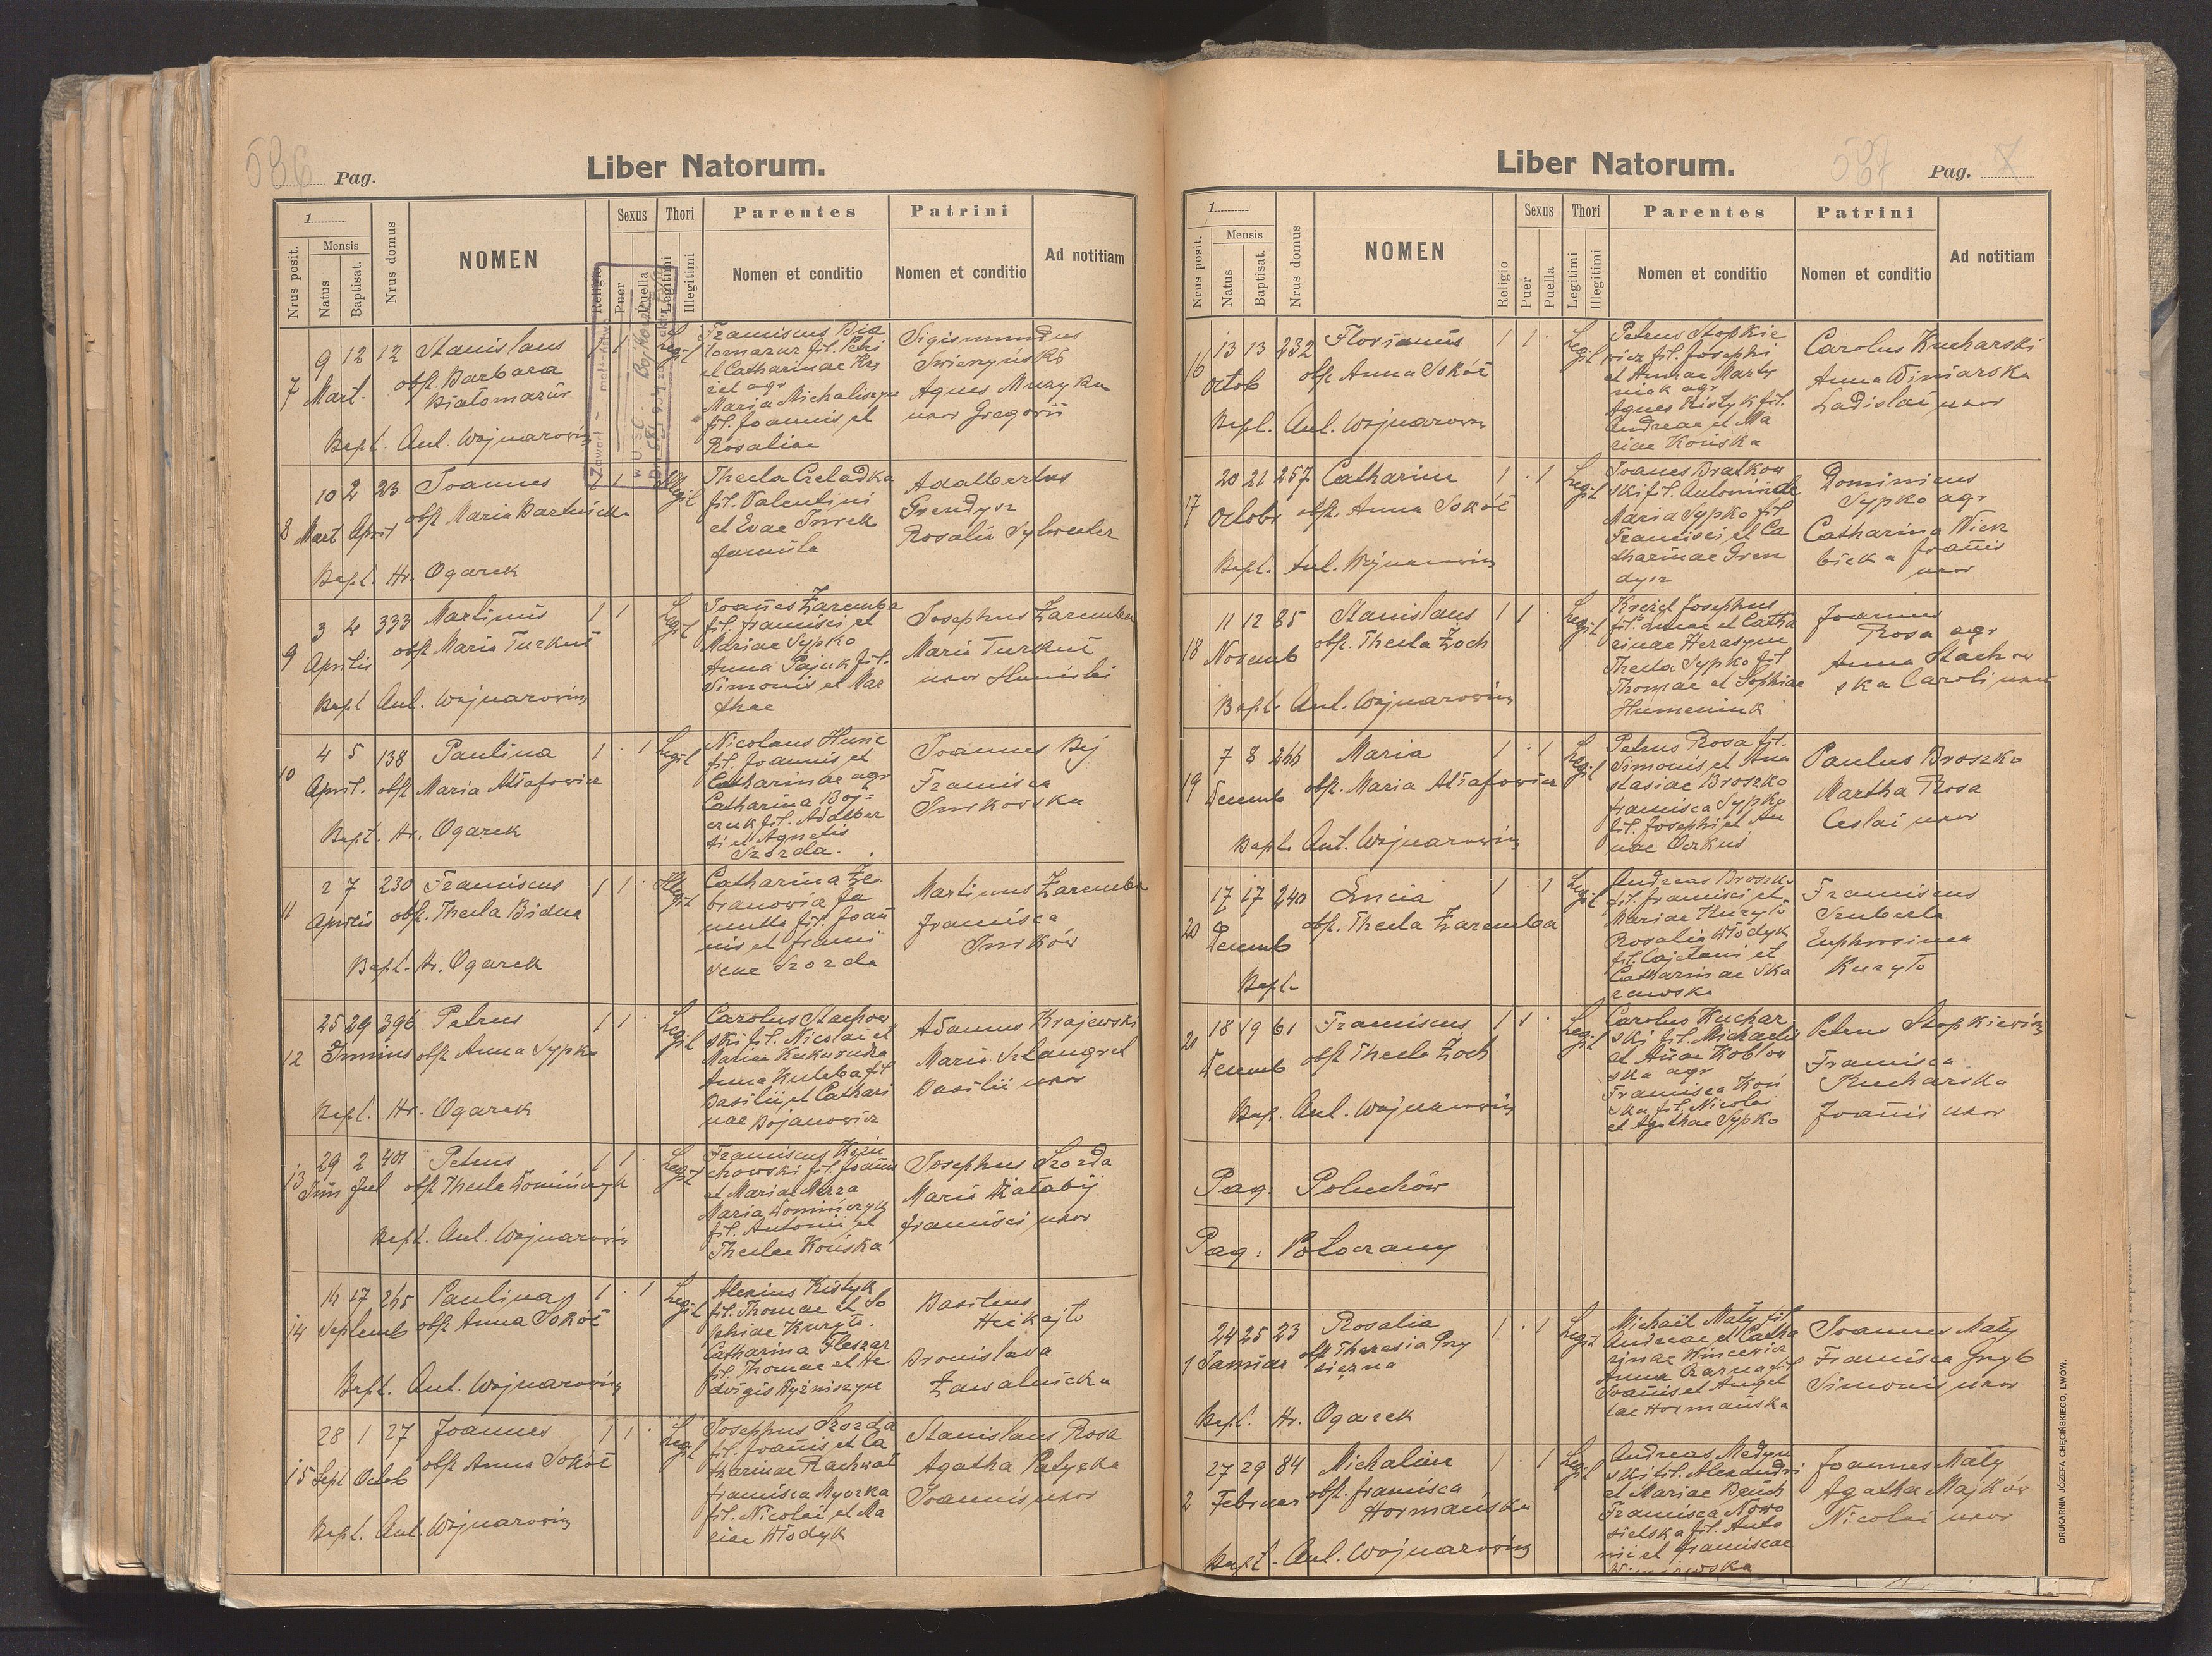 536 Pag.
Liber Natorum.
1
Nrus posit.
Mensis
Natus
Baptisat.
Nrus domus
NOMEN
Religio
Sexus
Puer
Puella
Thori
Legitimi
Illegitimi
Parentes
Nomen et conditio
Patrini
Nomen et conditio
Ad notitiam
7
9 12 12
Mart.
Stanislaus
obst. Barbara
Białomazur
Bapt. Ant. Wojnarowicz
1 1
Legit
Franciscus Bia
łomazur fil. Petri
et Catharinae
agr
Maria Michaliszyn
fil. Joannis et
Rosaliae
Sigismundus
Agnes Muzyka
uxor Gregorii
8
10 2 23
Mart April
Joannes
obst. Maria Bartnicka
Bapt. Hr. Ogarek
1 1
Illegit
Thecla Czeladka
fil. Valentini
et Evae
famula
Adalbertus
Grendysz
Rosalia Sylwester
9
3 4 333
Aprilis
Martinus
obst. Maria Turkuś
Bapt Ant. Wojnarowicz
1 1
Legit
Joanes Zaremba
fil. Francisci et
Mariae Sypko
Anna Pajuk fil.
Simonis et Mar
thae
Josephus Zaremba
Maria Turkuś
uxor Stanislai
10
4 5 138
April.
Paulina
obst Maria Astafowicz
Bapt. Hr. Ogarek
1 . 1
Legit
Nicolaus
fil. Joannis et
Catharinae agr
Catharina Boj
czuk fil. Adalber
ti et Agnetis
Szozda.
Joannes Bij
Francisca
11
2 7 230
Aprilis
Franciscus
obst. Thecla Bidna
Bapt. Hr. Ogarek
1 1 .
Illegit
Catharina Że
branowicz fa
mula fil. Joan
nis et Franci
scae Szozda
Martinus Zaremba
Francisca
12
25 29 396
Junius
Petrus
obst Anna Sypko
Bapt. Hr. Ogarek
1 1 .
Legit
Carolus Stachow
ski fil. Nicolai et
Mariae Kukurudza
Anna Kuleba fil
Basilii et Cathari
nae Bojanowicz
Adamus Krajewski
Maria Sztangret
Basilii uxor
13
29 2 401
Juni Jul
Petrus
obst Thecla Dominczyk
Bapt. Ant. Wojnarowicz
1 1 .
Legit
Franciscus
chowski fil. Joanis
et Mariae
Maria Dominczyk
fil. Antonii et
Theclae Końska
Josephus Szozda
Maria
Francisci uxor
14
14 17 245
Septemb
Paulina
obst Anna Sokół
Bapt. Ant. Wojnarowicz
1 . 1
Legit
Alexius Kistyk
fil. Thomae et So
phiae Kuryło.
Catharina Fleszar
fil. Thomae et He
dvigis
Basilius
Hełkajło
Bronislava
Zawalnicka
15
28 1 27
Sept Octob
Joannes
obst Anna Sokół
Bapt. Ant. Wojnarowicz
1 1 .
Legit
Josephus Szozda
fil. Joanis et Ca
tharinae Rachwał
Francisca
fil. Nicolai et Ma
riae Włodyk
Stanislaus Rosa
Agatha Patycka
Joannis uxor
Liber Natorum.
537 Pag.
1
Nrus posit.
Mensis
Natus
Baptisat.
Nrus domus
NOMEN
Religio
Sexus
Puer
Puella
Thori
Legitimi
Illegitimi
Parentes
Nomen et conditio
Patrini
Nomen et conditio
Ad notitiam
16
13 13 232
Octob
Florianus
obst Anna Sokół
Bapt. Ant. Wojnarowicz
1 1 .
Legit
Petrus Stopkie
wicz fil. Josephi
et Annae Marty
niak agr
Agnes Kistyk fil.
Andreae et Ma
riae Końska
Carolus Kucharski
Anna Winiarska
Ladislai uxor
17
20 21 257
Octobr
Catharina
obst. Anna Sokół
Bapt. Ant. Wojnarowicz
1 . 1
Legit
Joanes Bratkow
ski fil.
Maria Sypko fil
Francisci et Ca
tharinae Gren
dysz
Dominicus
Sypko agr
Catharina Wierz
bicka Joanis
uxor
18
11 12 85
Novemb
Stanislaus
obst. Thecla Zoch
Bapt. Ant. Wojnarowicz
1 1 .
Legit
Josephus
et Catha
rinae Herasym
Thecla Sypko fil
Thomae et Sophiae
Humeniuk
Joannes
Rosa agr
Anna Stachow
ska Caroli uxor
19
7 8 244
Decemb
Maria
obst. Maria Astafowicz
Bapt. Ant. Wojnarowicz
1 . 1
Legit
Petrus Rosa fil.
Simonis et Ana
stasiae Broszko
Francisca Sypko
fil. Josephi et An
nae
Paulus Broszko
Martha Rosa
Ceslai uxor
20
17 17 240
Decemb
Lucia
obst. Thecla Zaremba
Bapt.
1 . 1
Legit
Andreas Broszko
fil. Francisci et
Mariae Kuryło
Rosalia Włodyk
fil. Cajetani et
Catharinae Ska
rzewska
Franciscus
Szuberla
Euphrosina
Kuryło
21
18 19 61
Decemb
Franciscus
obst Thecla Zoch
Bap. Ant. Wojnarowicz
1 1 .
Legit
Carolus Kuchar
ski fil. Michaelis
et Anae Kozłow
ska agr
Francisca Koń
ska fil. Nicolai
et Agathae Sypko
Petrus Stopkiewicz
Francisca
Kucharska
Joanis uxor
Pag. Poluchów
Pag: Potoczany
1
24 25 23
Januar
Rosalia
obst Theresia Przy
sięzna
Bapt. Hr. Ogarek
1 . 1
Legit
Michael Mały fil
Andreae et Catha
rinae Wincewicz
Anna Czarna fil
Joanis et Angel
lae Hormańska
Joannes Mały
Francisca Gryb
Simonis uxor
2
27 29 84
Februar
Michalina
obst. Francisca
Hormańska
Bapt. Ant. Wojnarowicz
1 . 1
Legit
Andreas Medyn
ski fil. Alexandri
et Mariae
Francisca Nowo
sielska fil. Anto
nii et Franciscae
Joannes Mały
Agatha Majków
Nicolai uxor
DRUKARNIA JÓZEFA CHĘCIŃSKIEGO, LWÓW.